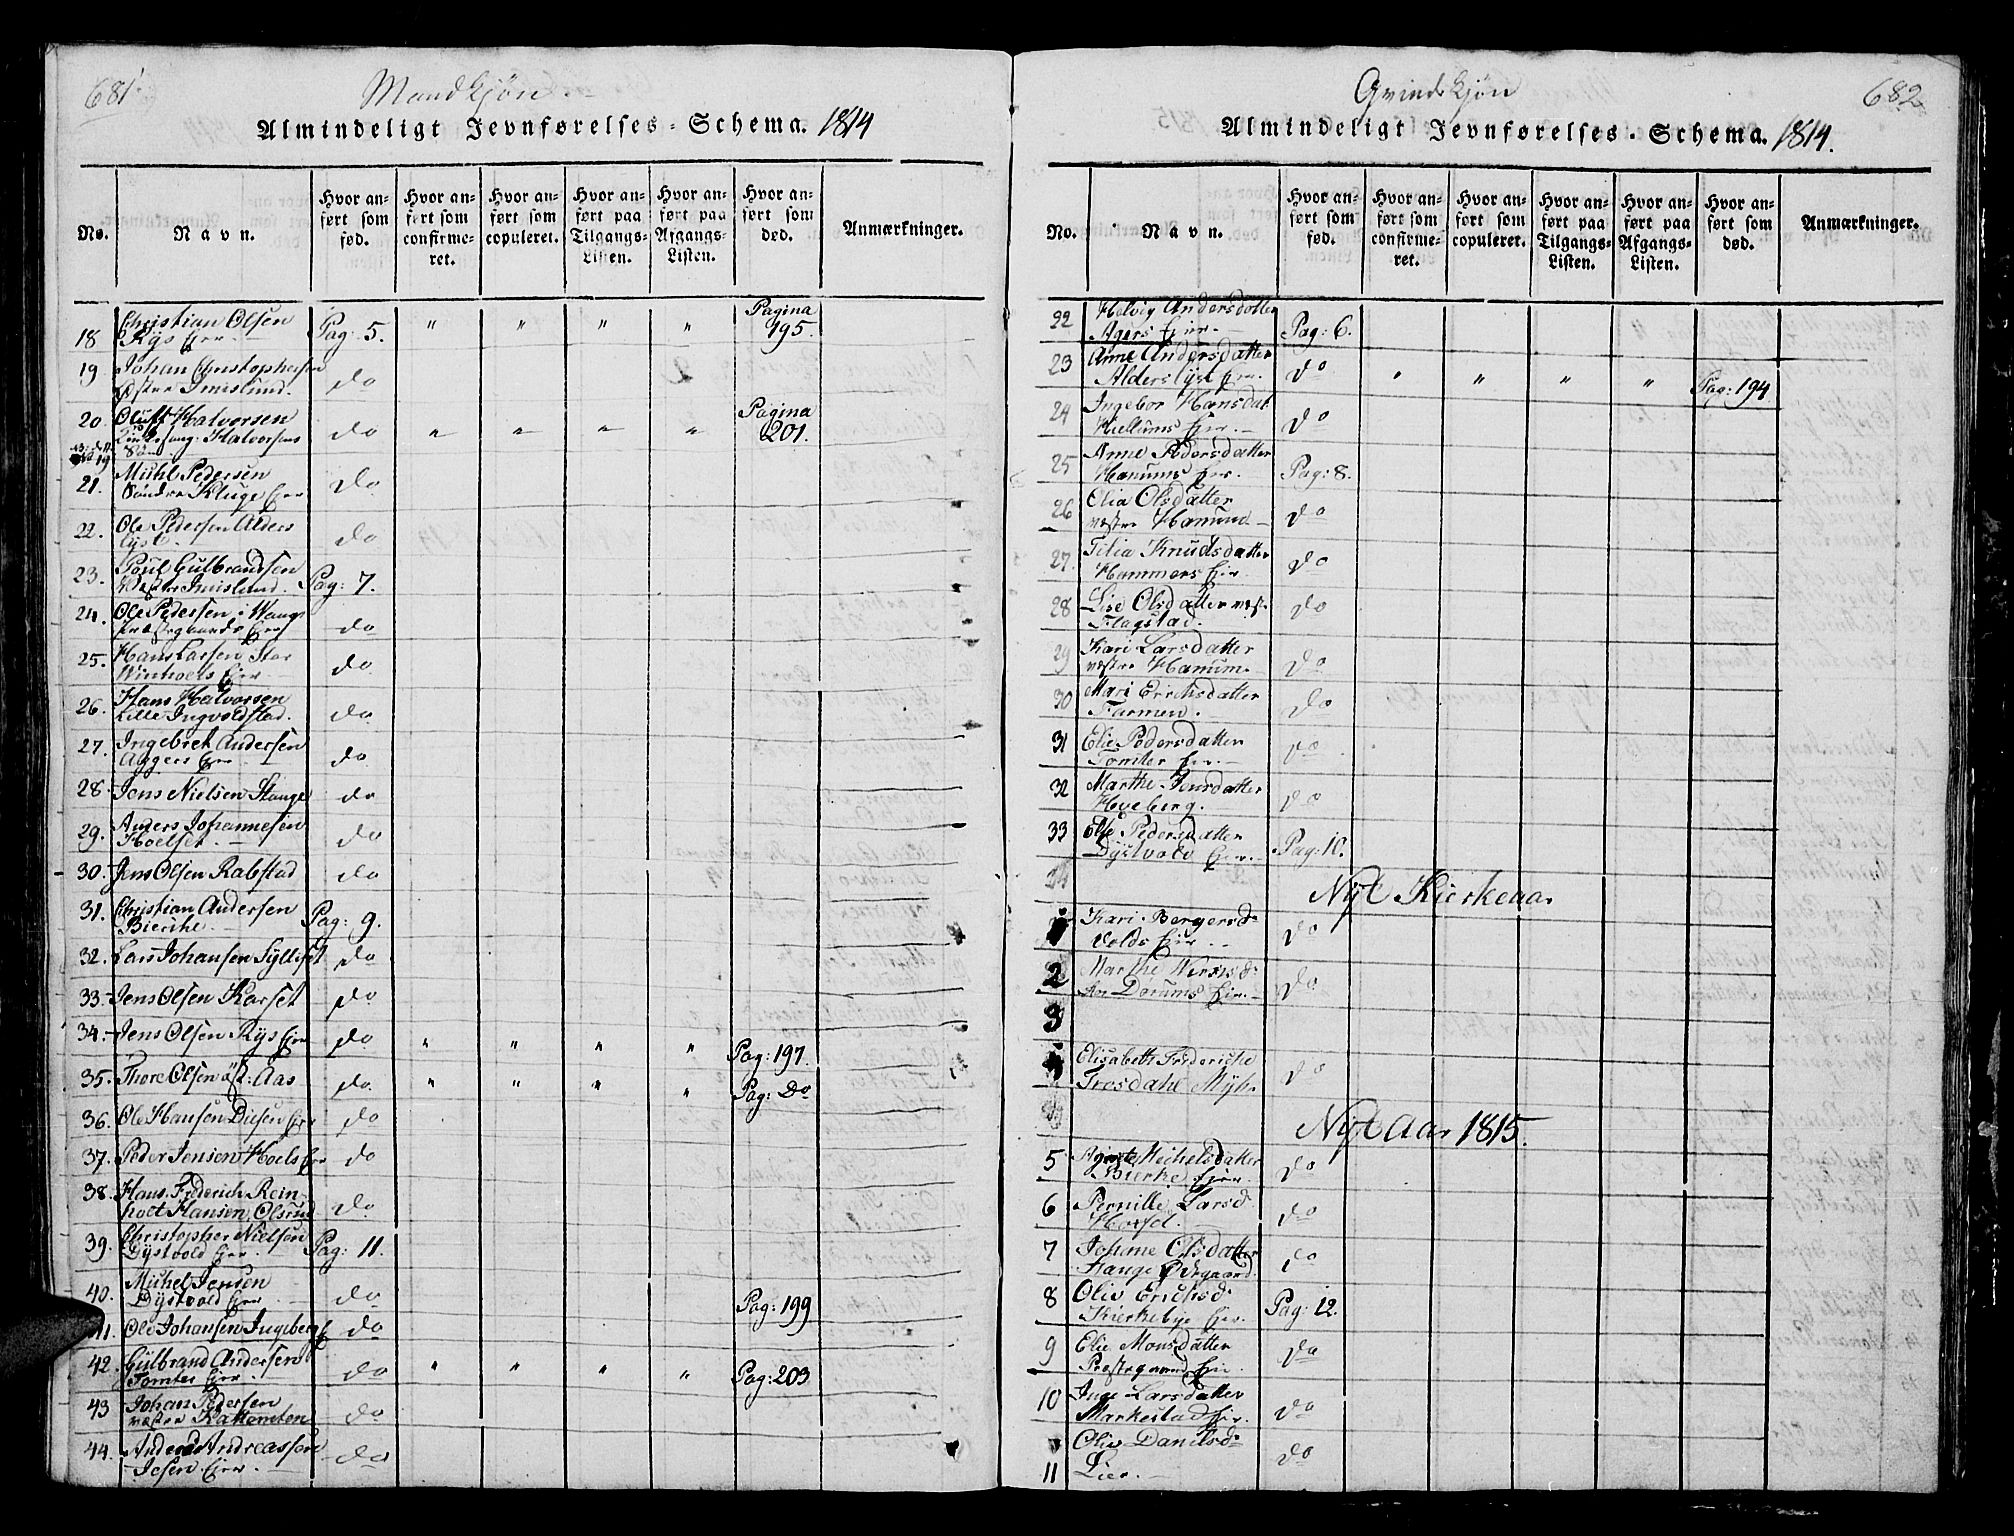 681
Mandkjøn.
Almindeligt Jevnførelses-Schema. 1814
No.
Navn.
Hvor anført som fød.
Hvor anført som confirmeret.
Hvor anført som copuleret.
Hvor anført paa Tilgangs-Listen.
Hvor anført paa Afgangs-Listen.
Hvor anført som død.
Anmærkninger.
18 Christian Olsen Rÿs Eier. Pag: 5. " " " " Pagina 195.
19 Johan Christophersen Østre Imislund. do
20 Oluff Halvorsen Halvorsens do " " " " Pagina 201.
21. Michl Pedersen Søndre Kluge Eier do
22. Ole Pedersen Alders lÿst. do
23. Poul Gulbrandsen Westre Imislund. Pag: 7.
24. Ole Pedersen i Wangs præstegaards Eier do
25. Hans Larsen Stor Winhoels Eier do
26. Hans Halvorsen Lille Ingvoldstad. do
27. Ingebret Andersen Aggers Eier do
28. Jens Nielsen Stange do
29. Anders Johannesen Hoelset. do
30. Jens Olsen Rabstad do
31. Christian Andersen Bierche. Pag: 9.
32. Lars Johansen Sÿlliset do
33. Jens Olsen Karset do
34. Jens Olsen Rÿs Eier do " " " " Pag: 197.
35. Thore Olsen øst: Aas do " " " " Pag: Do
36. Ole Hansen Diesen Eier do
37. Peder Jensen Hoels Eier do
38. Hans Friderich Reinholt Hansen, Olsrud do
39. Christopher Nielsen Dÿstvold Eier. Pag: 11.
40. Michel Jensen Dÿstvold Eier do Pag: 199
41. Ole Johansen Ingeberg E do
42. Gulbrand Andersen Tomter Eier. do " " " " Pag: 203
43 Johan Pedersen vestre Kattemten do
44. Anders Andreassen Jesen Eier. do
682
Qvindekjøn
Almindeligt Jevnførelses-Schema. 1814.
No.
Navn.
Hvor anført som fød.
Hvor anført som confirmeret.
Hvor anført som copuleret.
Hvor anført paa Tilgangs-Listen.
Hvor anført paa Afgangs-Listen.
Hvor anført som død.
Anmærkninger.
22 Helvig Andersdatter Agers Eier. Pag: 6.
23 Anne Andersdatter Alderslÿst Eier. do " " " " Pag: 194
24 Ingebor Hansdat Hiellums Eier. do
25 Anne Pedersdatter Hanums Eier. Pag: 8.
26 Olia Olsdatter vestre Hanund do
27. Tilia Knudsdatter Hammers Eier. do
28 Lise Olsdatter vest. Flagstad. do
29 Kari Larsdatter vestre Hanum. do
30 Mari Erichsdatter Farmen. do
31 Elie Pedersdatter Tomter Eier. do
32 Marthe Iversdatter Hoeberg. do
33 Else Pedersdatter Dÿstvold Eier. Pag: 10.
Nÿt Kierkeaar
Kari Bergersd. Volds Eier. do
2 Marthe Dorums Eier. do
3
4 Elisabeth Frideriche Trosdahl Mÿhr. do
Nÿt Aar 1815.
5 Agnete Michelsdatter Bierke Eier. do
6 Pernille Larsd. Horsel. do
7 Johane Olsdatter Hauge Ødegaard. do
8 Oliv Erichsd. Kierkebÿe Eier. Pag: 12.
9 Elie Monsdatter Præstegaard Eier. do
10 Inge Larsdatter Markestad Eier. do
11 Oliv Danielsd. Lier. do